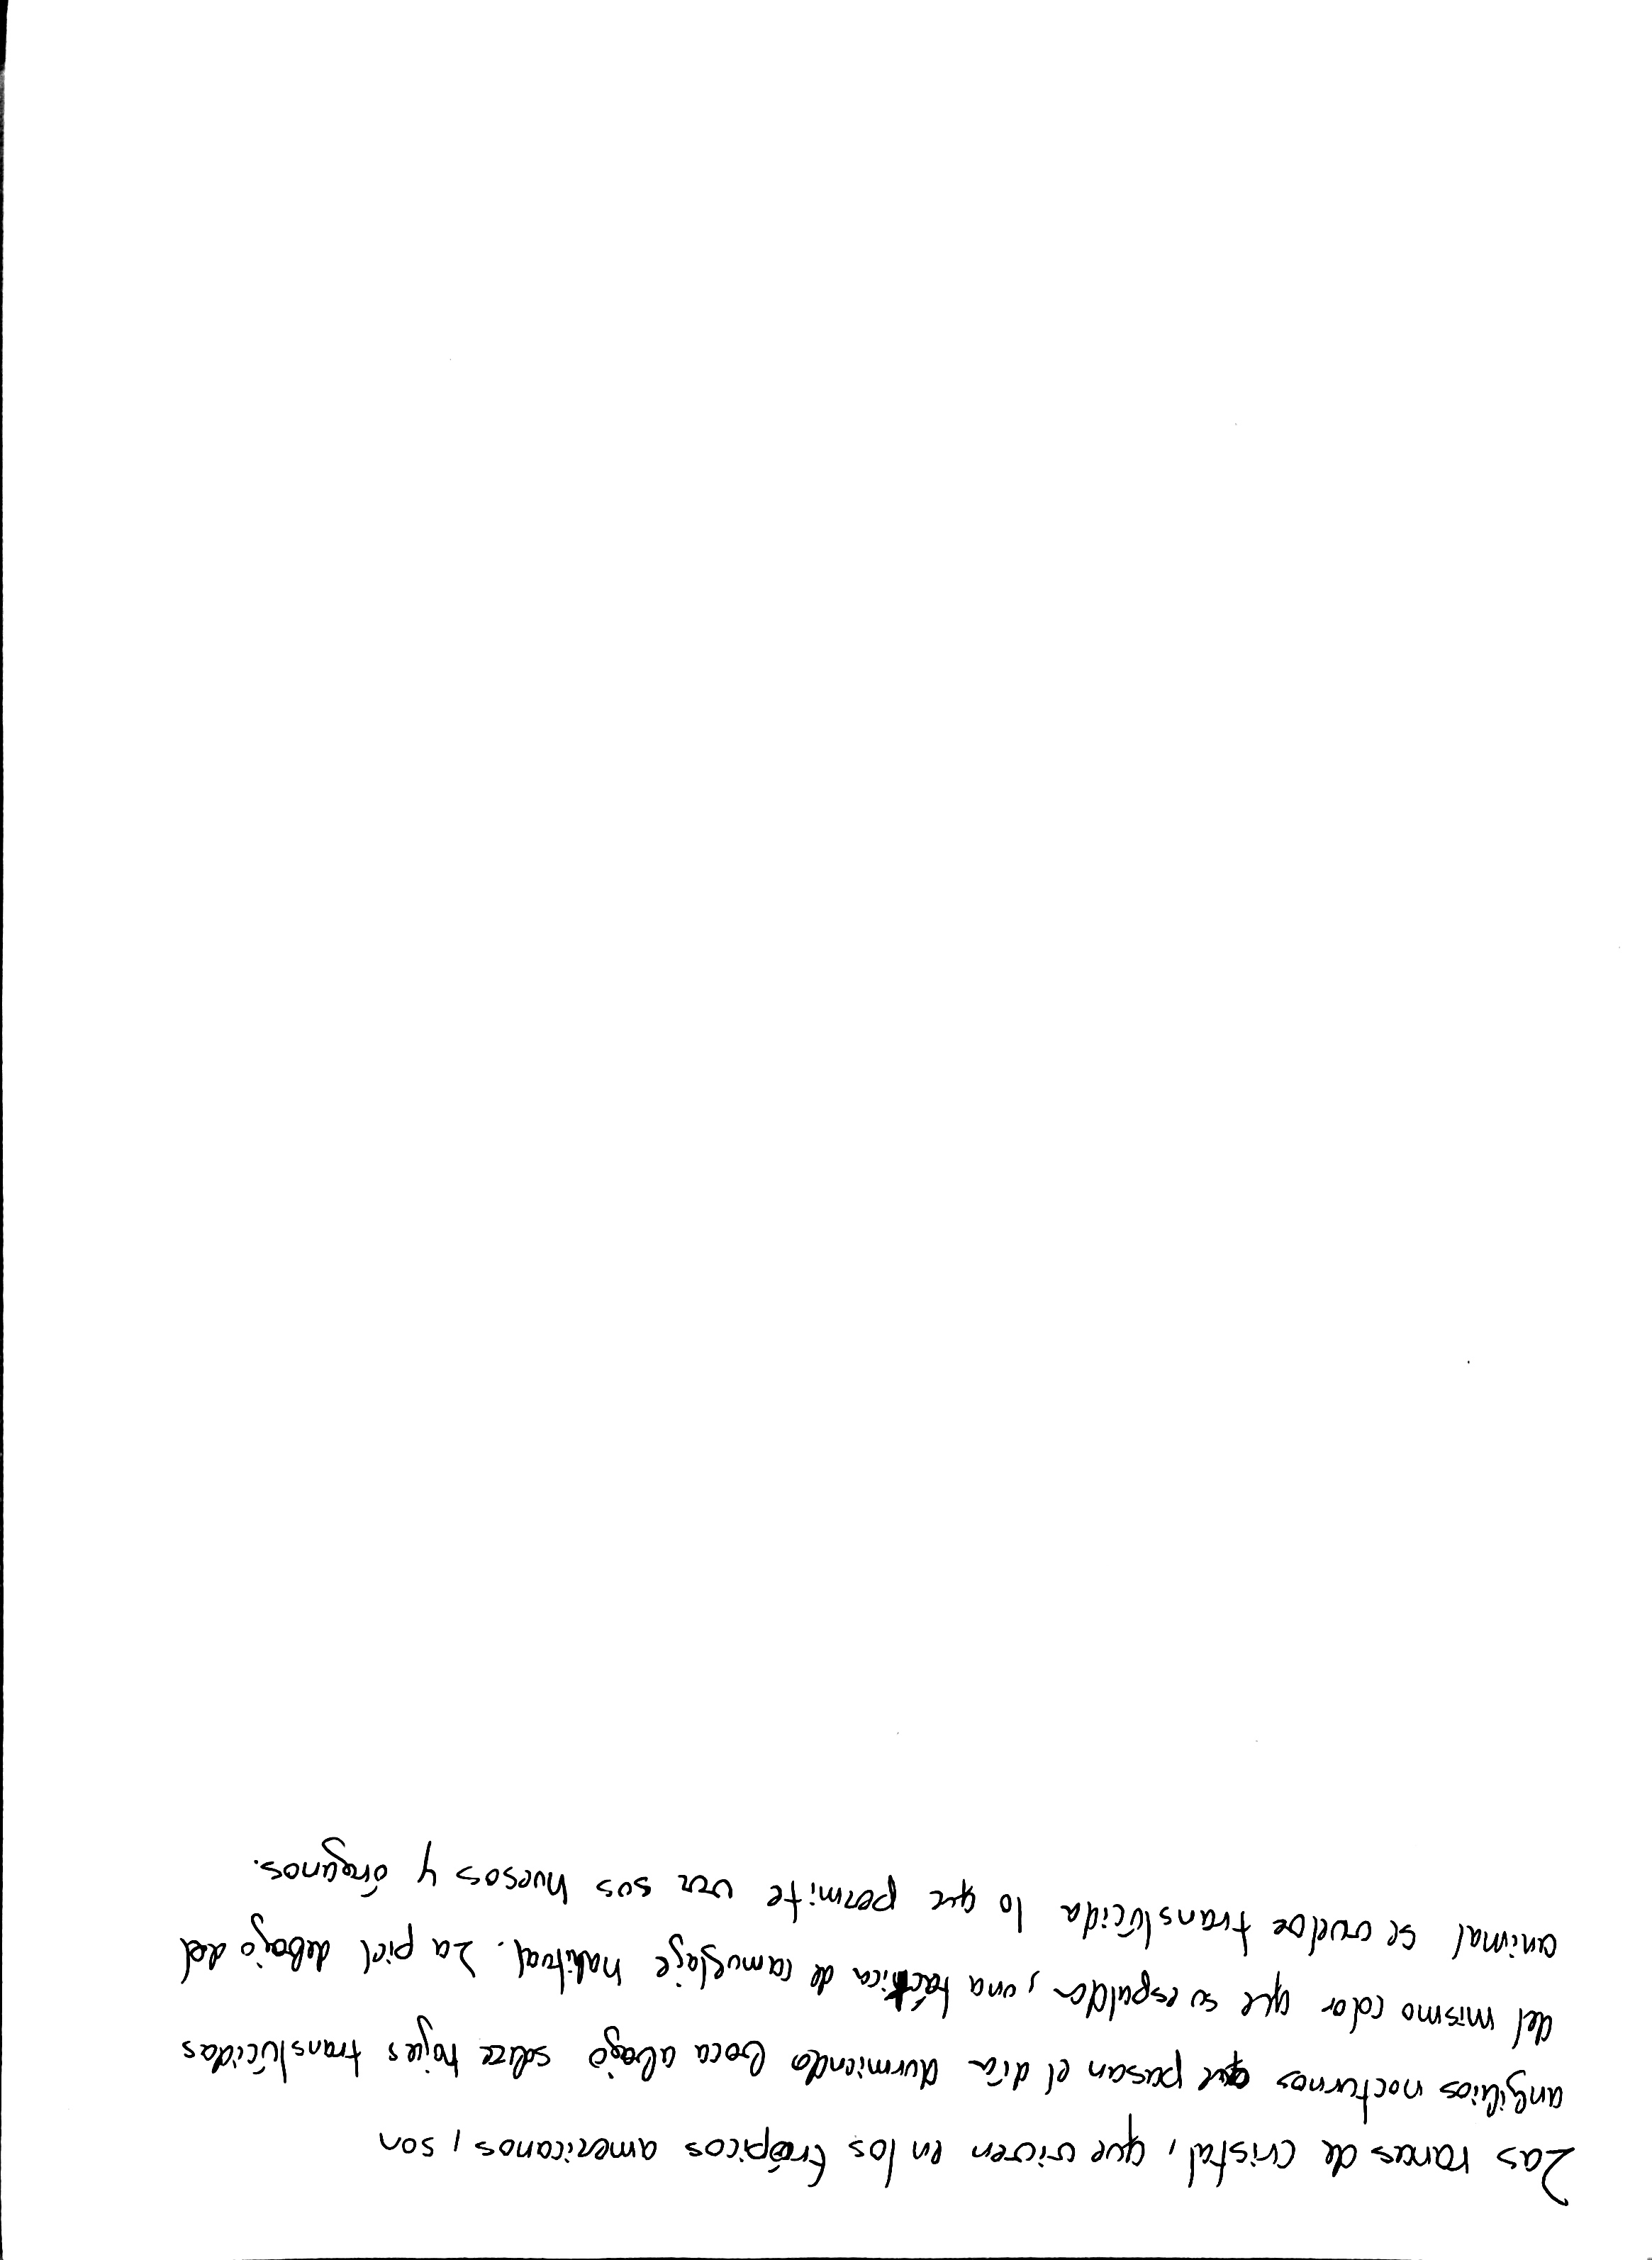 Las ranas de cristal, que viven en los trópicos americanos, son
anfibios nocturnos que pasan el día durmiendo boca abajo sobre hojas translúcidas
del mismo color que su espalda, una táctica de camuflaje habitual. La piel debajo del
animal se vuelve translúcida lo que permite ver sus huesos y órganos.